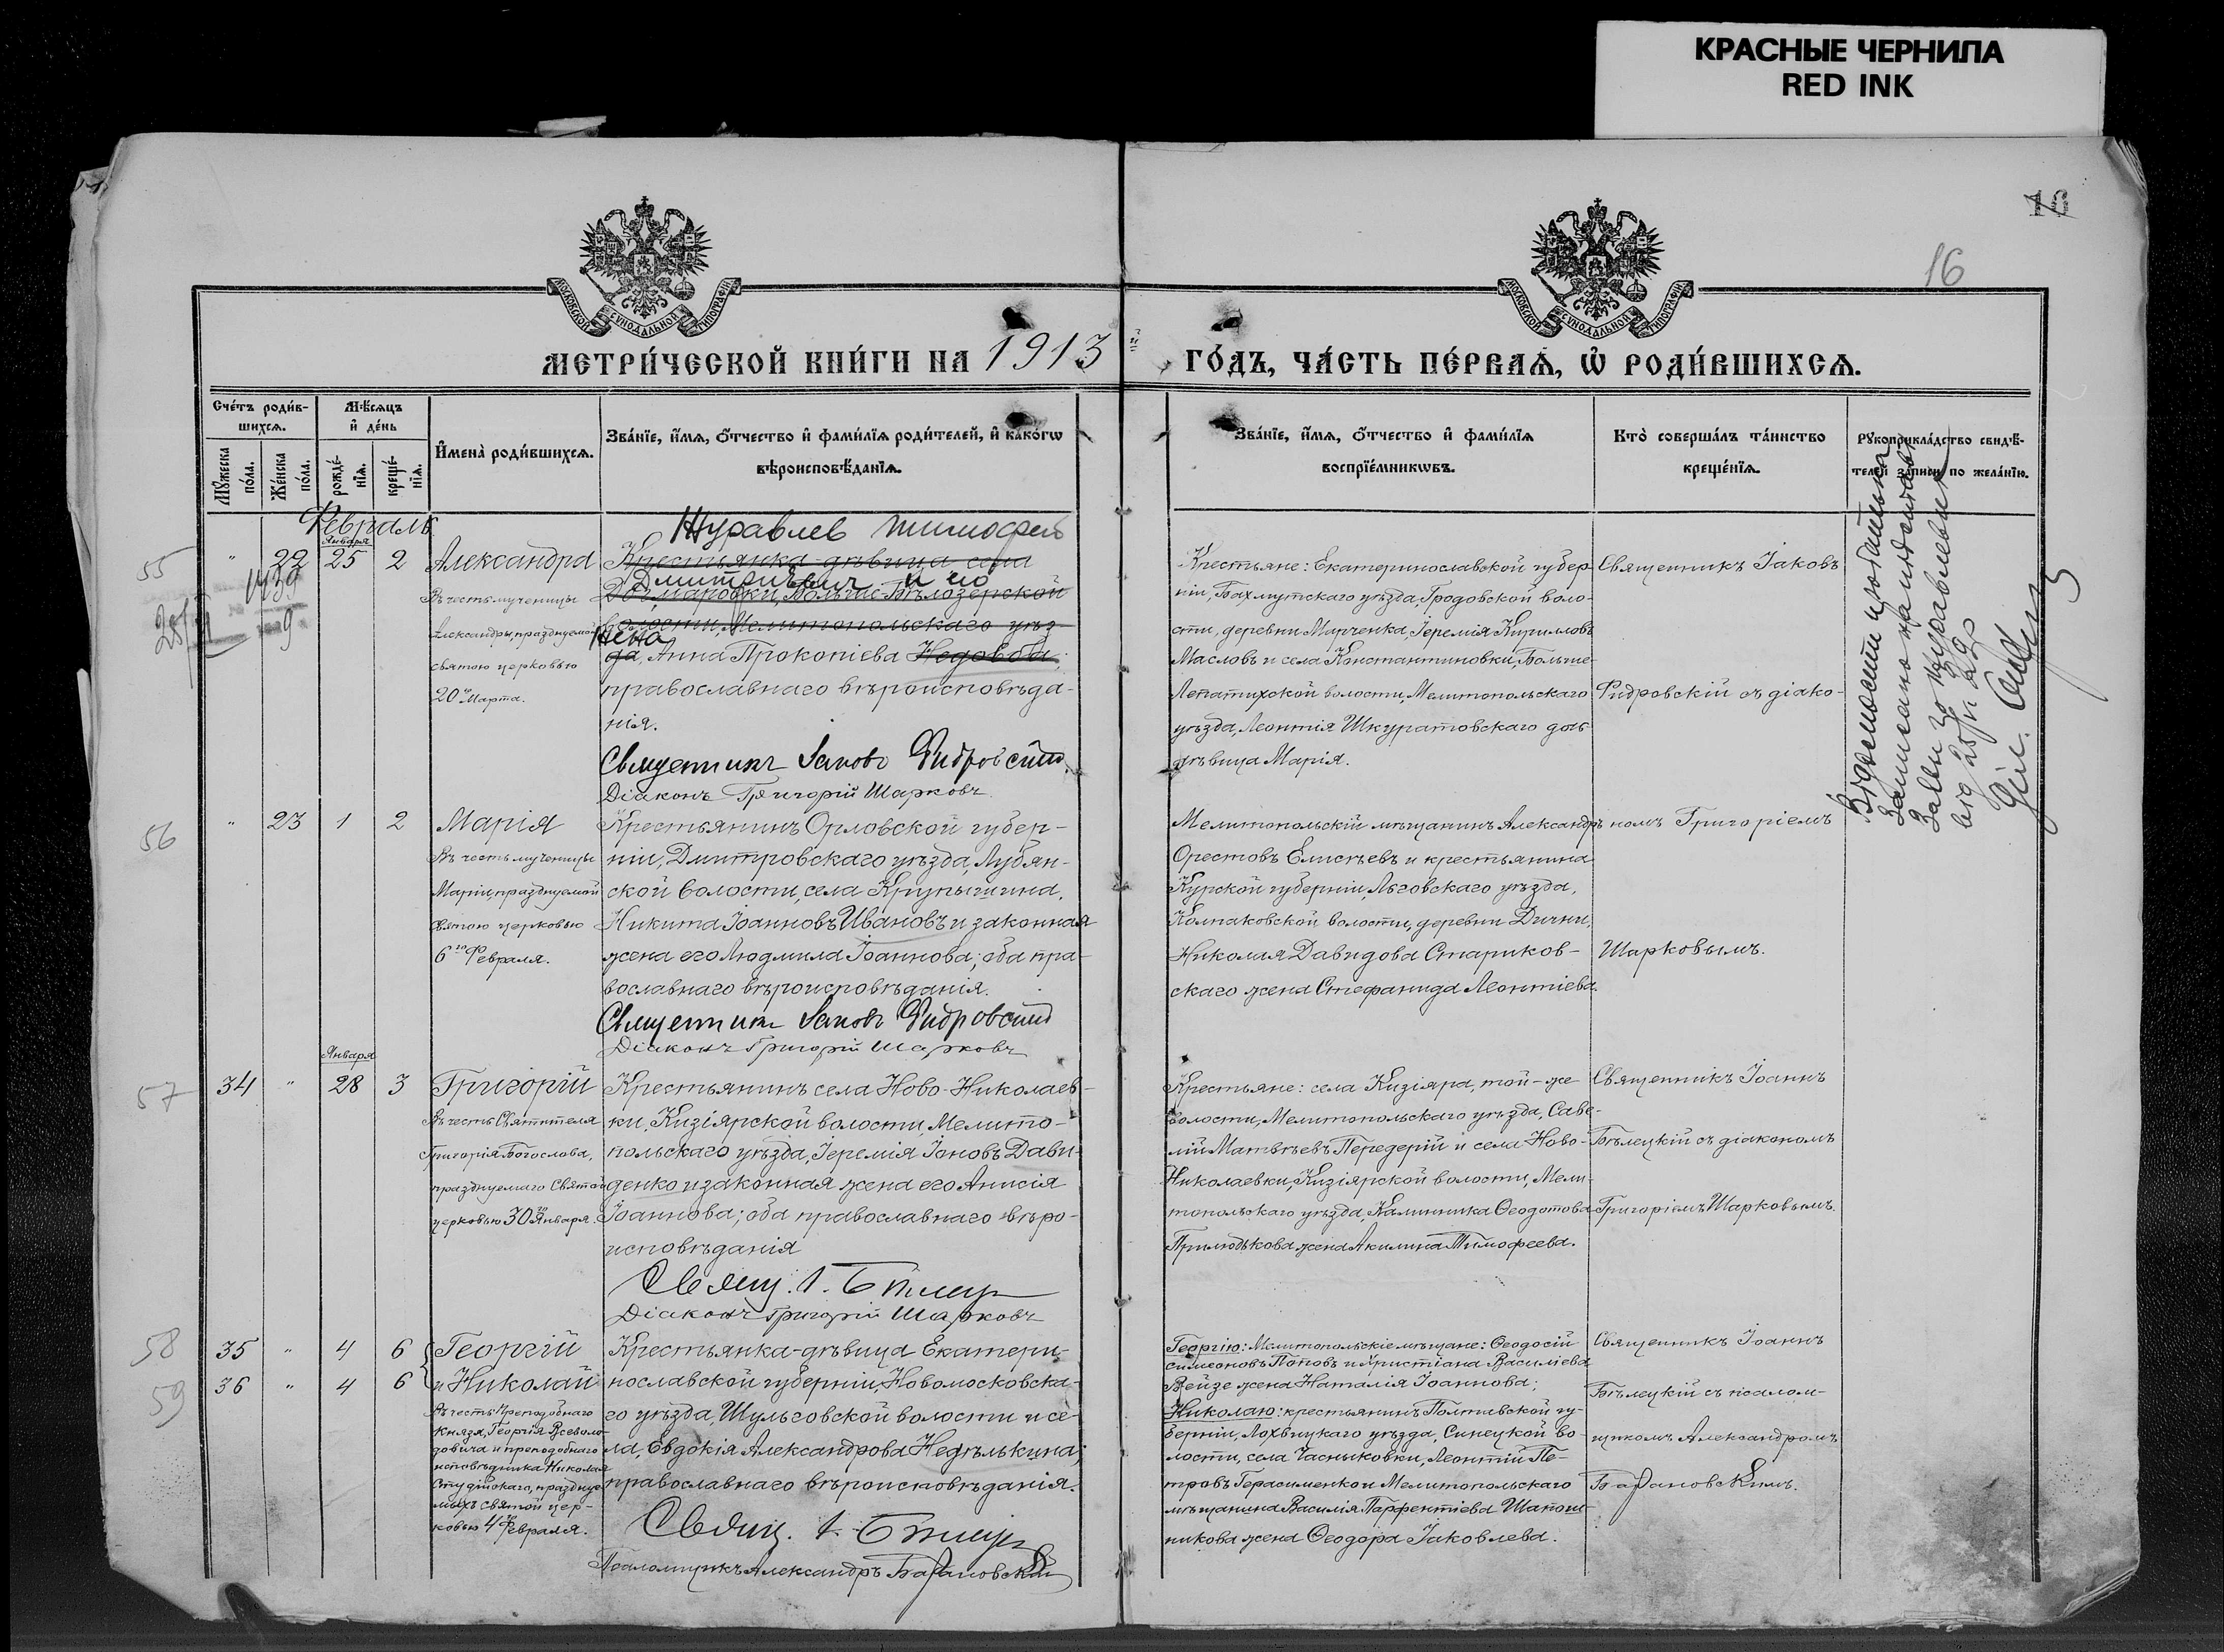 КРАСНЫЕ ЧЕРНИЛА
RED INK
16
16
МОСКОВСКОЙ СУНОДАЛЬНОЙ ТИПОГРАФІИ
МОСКОВСКОЙ СУНОДАЛЬНОЙ ТИПОГРАФІИ
МЕТРИ́ЧЕСКОЙ КНИ́ГИ НА 1913й ГО́ДЪ, ЧА́СТЬ ПЕ́РВАѦ, Ѡ҆ РОДИ́ВШИХСѦ.
Сче́тъ роди́в-
шихсѧ.
Мѣ́сѧцъ
и҆ де́нь
Мꙋ́жеска
по́ла.
Же́нска
по́ла.
рожде́-
нїѧ.
креще́-
нїѧ.
И҆мена̀ роди́вшихсѧ.
Зва́нїе, и҆́мѧ, ѻ҆́тчество и҆ фами́лїѧ роди́телей, и҆ како́гѡ
вѣроисповѣ́данїѧ.
Зва́нїе, и҆́мѧ, ѻ҆́тчество и҆ фами́лїѧ
воспрїе́мникѡвъ.
Кто̀ соверша́лъ та́инство
креще́нїѧ.
Рꙋкоприкла́дство свидѣ́-
телей за́писи по жела́нїю.
Февраль
Января
55
" 22 25 2
1439
9
Александра
Въ честь мученицы
Александры, празднуемой
святою церковью
20го Марта.
Журавлев Тимофей
Крестьянка-дѣвица села
Дмитриевич и его
Больше-Бѣлозерской
волости, Мелитопольскаго уѣз-
жена
да, Анна Прокопіева Недовова
православнаго вѣроисповѣда-
нія.
Священникъ Іаковъ Фидровскій
Діаконъ Григорій Шарковъ
Крестьяне: Екатеринославской губер-
ніи, Бахмутскаго уѣзда, Гродовской воло-
сти, деревни Марченка, Іеремія Кирилловъ
Масловъ и села Константиновки, Больше-
Лепатихской волости, Мелитопольскаго
уѣзда, Леонтія Шкуратовскаго дочь
дѣвица Марія.
Священникъ Іаковъ
Фидровскій съ діако-
номъ Григоріемъ
Шарковымъ.
56
" 23 1 2
Марія
Въ честь мученицы
Маріи, празднуемой
святою церковью
6го Февраля.
Крестьянинъ Орловской губер-
ніи, Дмитровскаго уѣзда, Лубян-
ской волости, села Крупышина,
Никита Іоанновъ Ивановъ и законная
жена его Людмила Іоаннова; оба пра-
вославнаго вѣроисповѣданія.
Священникъ Іаковъ Фидровскій
Діаконъ Григорій Шарковъ
Мелитопольскій мѣщанинъ Александръ
Орестовъ Елисѣевъ и крестьянина
Курской губерніи, Льговскаго уѣзда,
Колпаковской волости, деревни Дични,
Николая Давидова Стариков-
скаго жена Стефанида Леонтіева.
Января
57
34 " 28 3
Григорій
Въ честь Святителя
Григорія Богослова,
празднуемаго Святой
церковью 30го Января
Крестьянинъ села Ново-Николаев-
ки, Кизіярской волости, Мелито-
польскаго уѣзда, Іеремія Іоновъ Дави-
денко и законная жена его Анисія
Іоаннова; оба православнаго вѣро-
исповѣданія
Свящ. І. Бѣлец
Діаконъ Григорій Шарковъ
Крестьяне: села Кизіяра, той-же
волости, Мелитопольскаго уѣзда, Саве-
лій Матвѣевъ Передерій и села Ново-
Николаевки, Кизіярской волости, Мели-
топольскаго уѣзда, Калинника Ѳеодотова
Прилюдькова жена Акилина Тимофеева.
Священникъ Іоаннъ
Бѣлецкій съ діакономъ
Григоріемъ Шарковымъ.
58
35 " 4 6
59
36 " 4 6
Георгій
и Николай
Въ честь Преподобнаго
Князя, Георгія Всеволо-
довича и преподобнаго
исповѣдника Николая
Студійскаго, праздну
мыхъ святой цер-
ковью 4го Февраля.
Крестьянка-дѣвица Екатери-
нославской губерніи, Новомосковска-
го уѣзда, Шульговской волости и се-
ла, Евдокія Александрова Недѣлькина;
православнаго вѣроисповѣданія.
Свящ. І. Бѣлец
Псаломщикъ Александръ Барановскій
Георгію: Мелитопольскіе мѣщане: Ѳеодосій
Симеоновъ Поповъ и Христіана Василіева
Вейзе жена Наталія Іоаннова;
Николаю: крестьянинъ Полтавской гу-
берніи, Лохвицкаго уѣзда, Синецкой во-
лости, села Часныковки, Леонтій Пе-
тровъ Герасименко и Мелитопольскаго
мѣщанина Василія Парфентіева Шапош-
никова жена Ѳеодора Іаковлева.
Священникъ Іоаннъ
Бѣлецкій съ псалом-
щикомъ Александромъ
Барановскимъ.